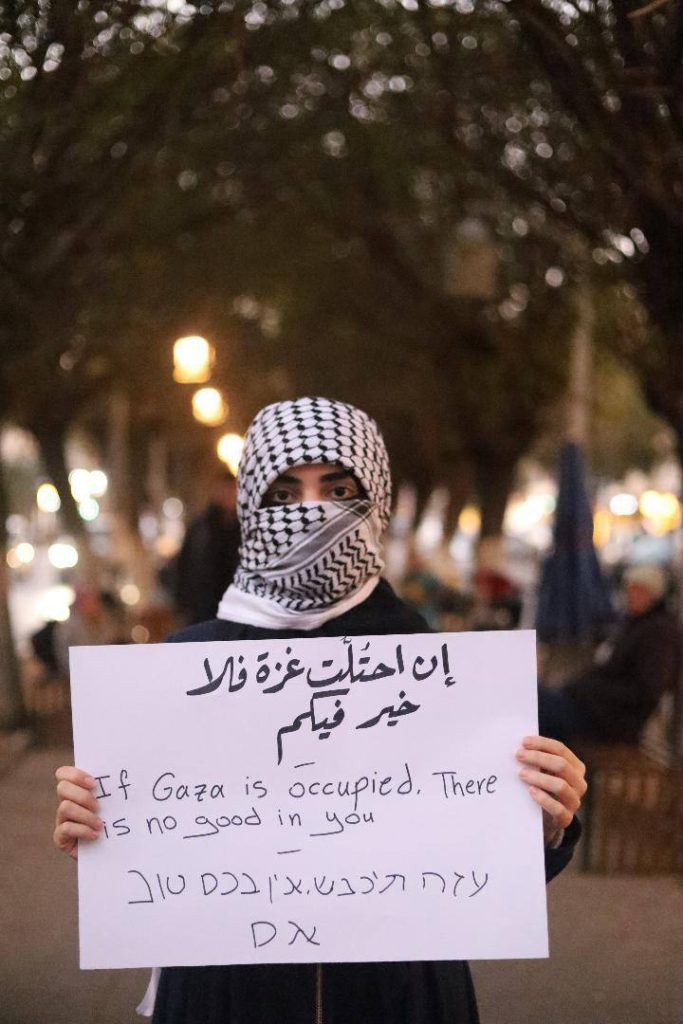 إن احتُلَّت غزة فلا
خير فيكم
-
If Gaza is occupied. There
is no good in you
-
עזה תיכבש.אין בכם טוב
אם